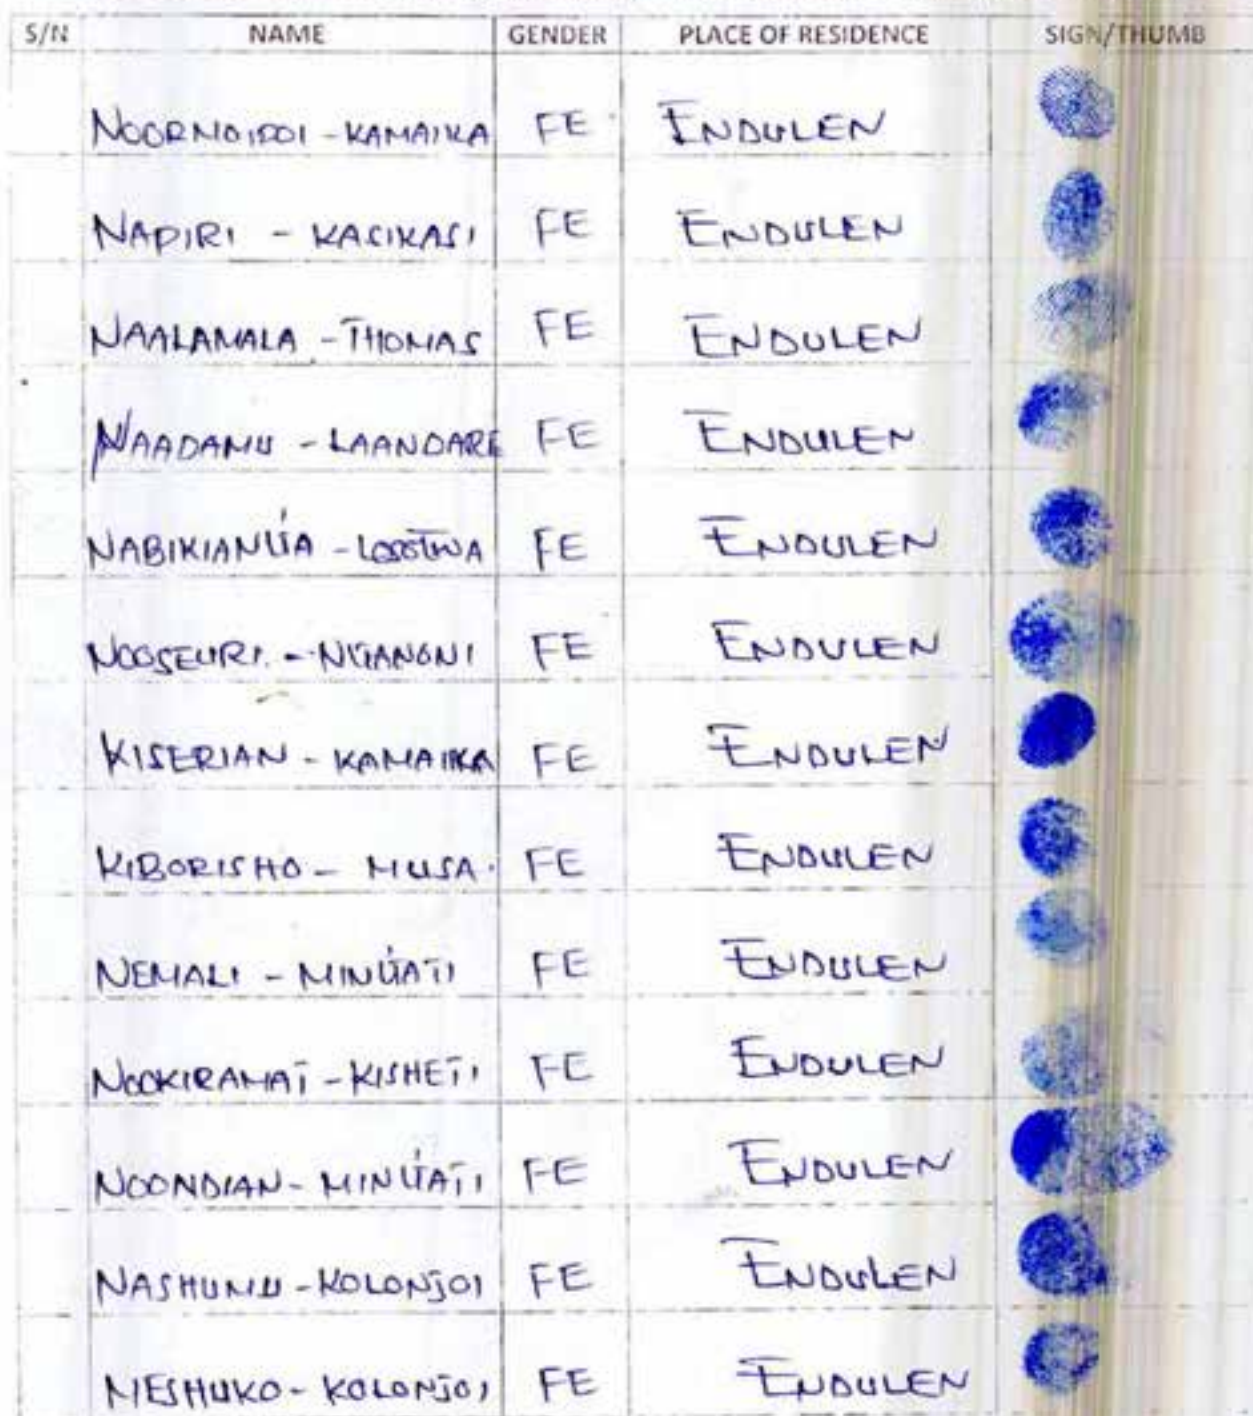 S/N NAME GENDER PLACE OF RESIDENCE SIGN/THUMB
KAMAIKA FE ENDULEN
NAPIRI - KASIKASI FE ENDULEN
NAALAMALA - THOMAS FE ENDULEN
NAADAMU - LAANDARE FE ENDULEN
FE ENDULEN
NOOSEURI - FE ENDULEN
KISERIAN - KAMAIKA FE ENDULEN
KIBORISHO - MUSA. FE ENDULEN
NEMALI - FE ENDULEN
NOOKIRAMAT - KISHETI FE ENDULEN
NOONDIAN - FE ENDULEN
NASHUMU - KOLONJOI FE ENDULEN
MESHUKO - KOLONJOI FE ENDULEN